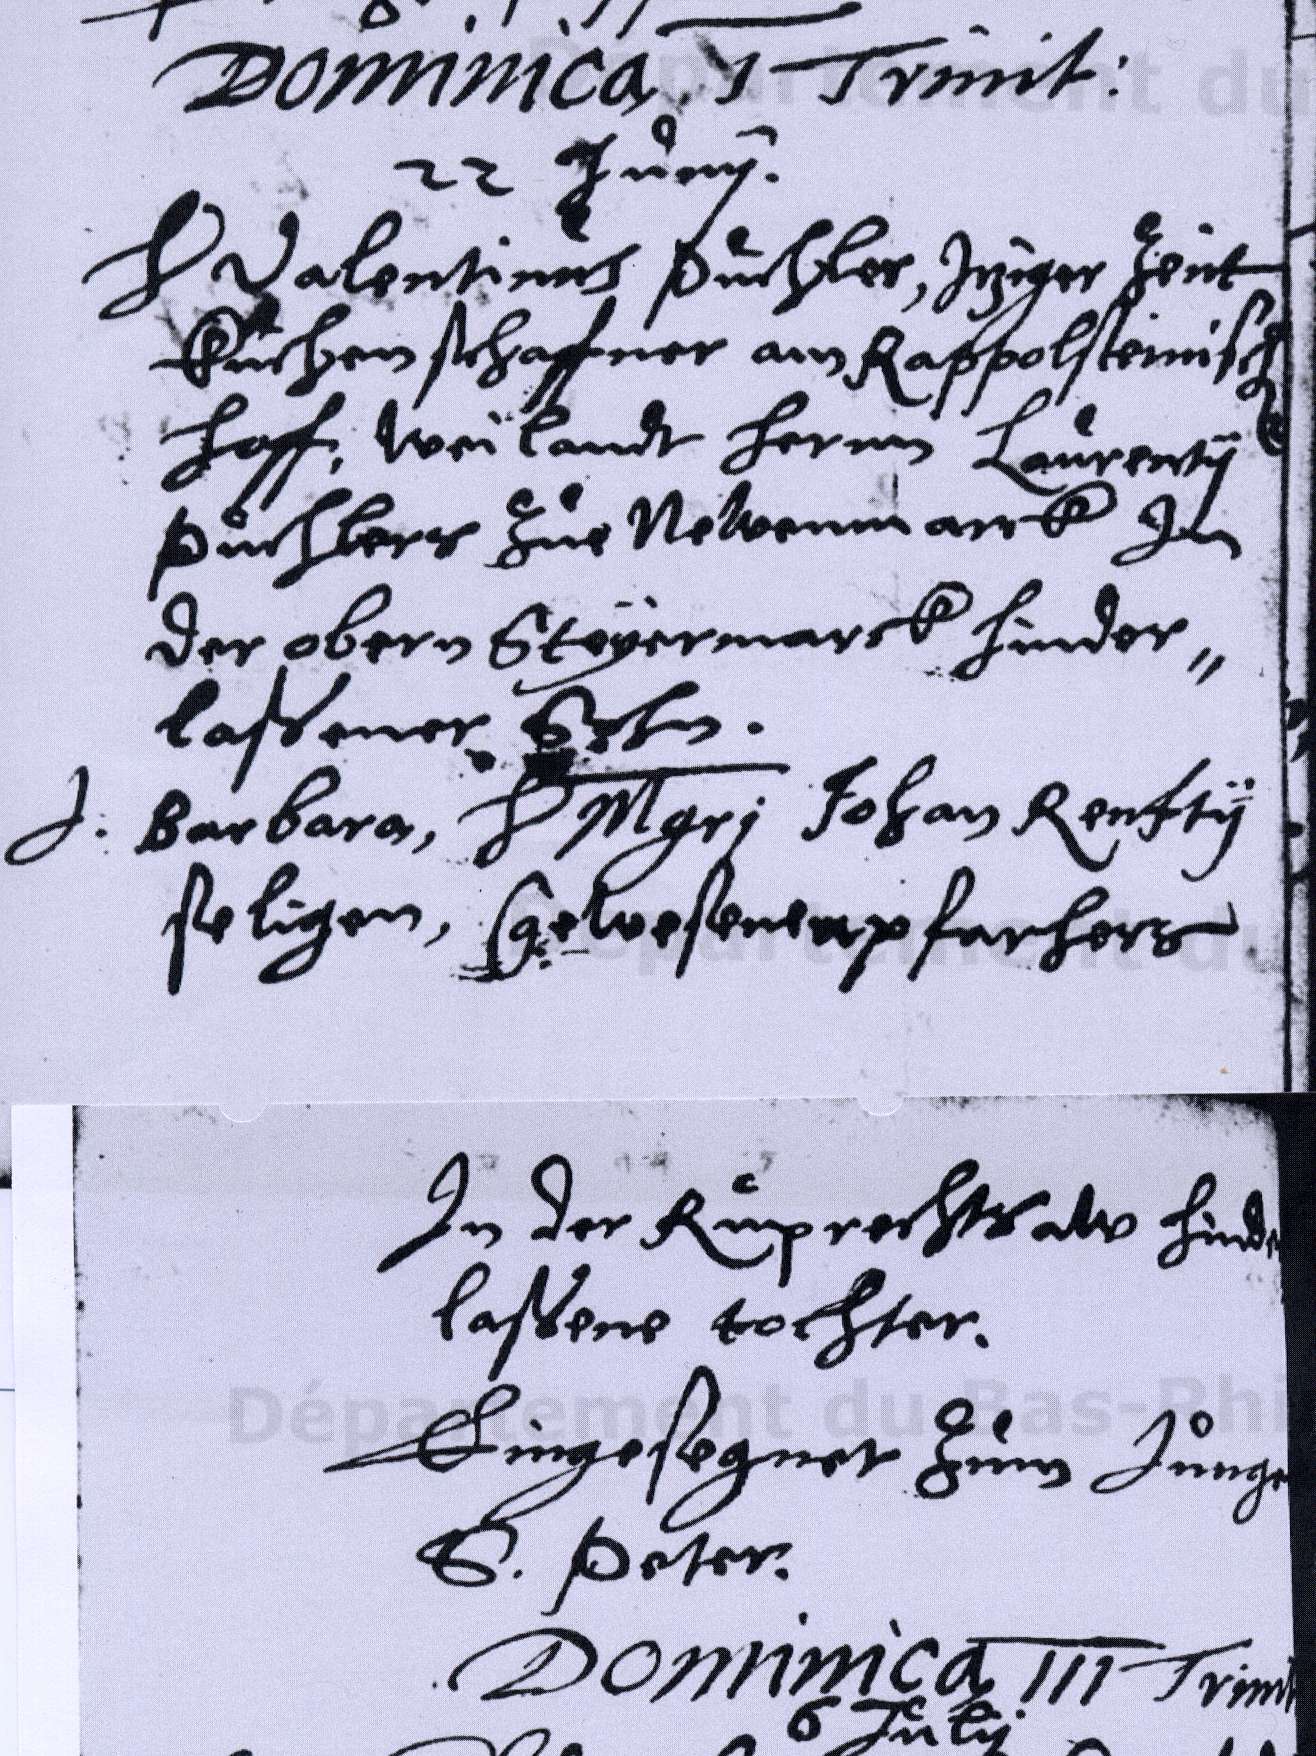 Dominica I Trinit:
22 Junij.
H Valentinus Püchler, Jtziger Zeit
Kuchenschaffner am Rappolsteinisch
hoff, weilandt herrn Laurentij
Püchlers Zue Newenmarck Jn
der obern Steÿermarck hinder„
laßener Sohn.
J. Barbara, H Mgri Johan Renftij
seligen, Gewesenen pfarhers
Jn der Ruprechtsaw hinder
laßene tochter.
Eingesegnet Zum Junge
S. Peter.
Dominica III Trinit
6 Julij
Département du
Département du
Département du Bas-Rhi